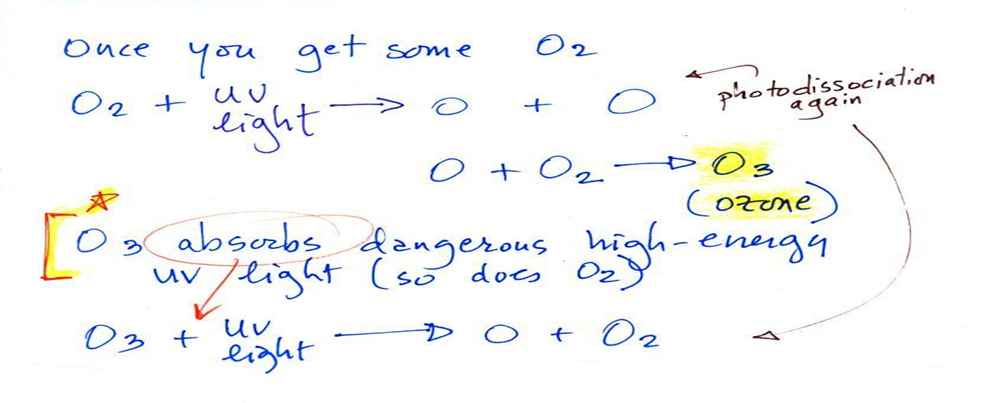 Once you get some O2
O2 + uv light → O + O
photodissociation again
O + O2 → O3
(ozone)
O3 absorbs dangerous high-energy
uv light (so does O2)
O3 + uv light → O + O2